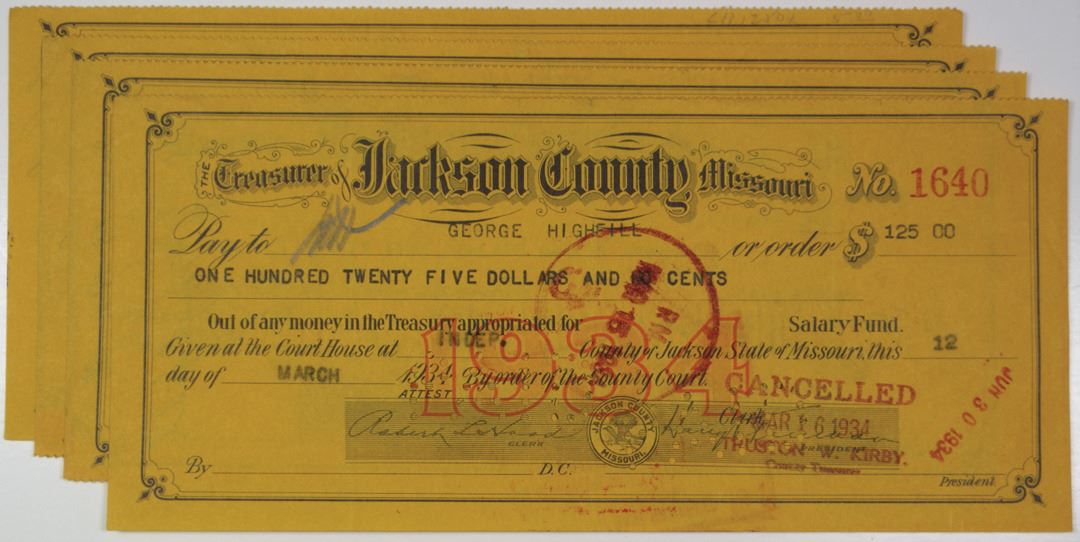 THE Treasurer of Jackson County Missouri No. 1640
Pay to GEORGE HIGHFILL or order $ 125 00
ONE HUNDRED TWENTY FIVE DOLLARS AND NO CENTS
Out of any money in the Treasury appropriated for Salary Fund.
Given at the Court House at INDEP. County of Jackson State of Missouri, this 12
day of MARCH 1934 By order of the County Court.
1934
CANCELLED
ATTEST
Clerk
MAR 16 1934
JUN 30 1934
CLERK
JACKSON COUNTY
MISSOURI
PRESIDENT
TRUSTON W. KIRBY,
County Treasurer
By D.C. President